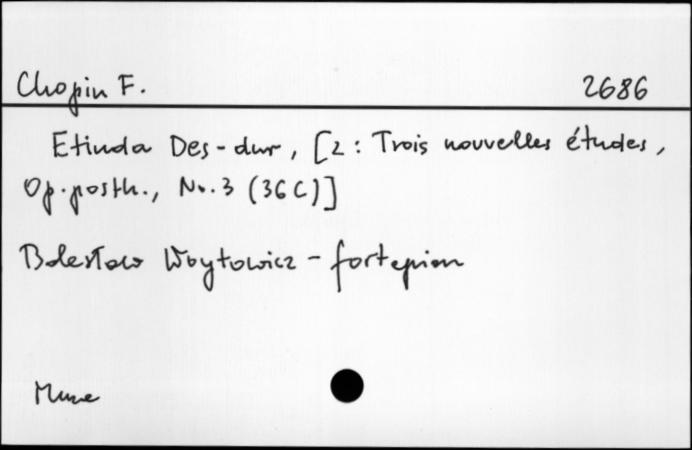 Chopin F. 2686
Etiuda Des-dur, [z: Trois nouvelles études,
Op. posth., No. 3 (36 C)]
Bolesław Woytowicz - fortepian
Muza